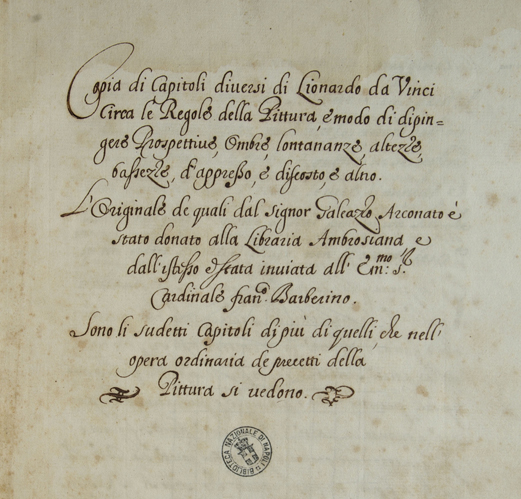 Copia di Capitoli diuersi di Lionardo da Vinci
Circa le Regole della Pittura, e modo di dipin=
gere Prospettiue, Ombre, lontananze, altezze,
bassezze, d'appresso, e discosto, e altro.
L'Originale de quali dal Signor Galeazzo Arconato è
stato donato alla Libraria Ambrosiana e
dall'istesso è stata inuiata all' Em:mo Sr.
Cardinale Fran.o Barberino.
Sono li sudetti Capitoli di più di quelli, che nell'
opera ordinaria de precetti della
Pittura si vedono.
BIBLIOTECA NAZIONALE DI NAPOLI